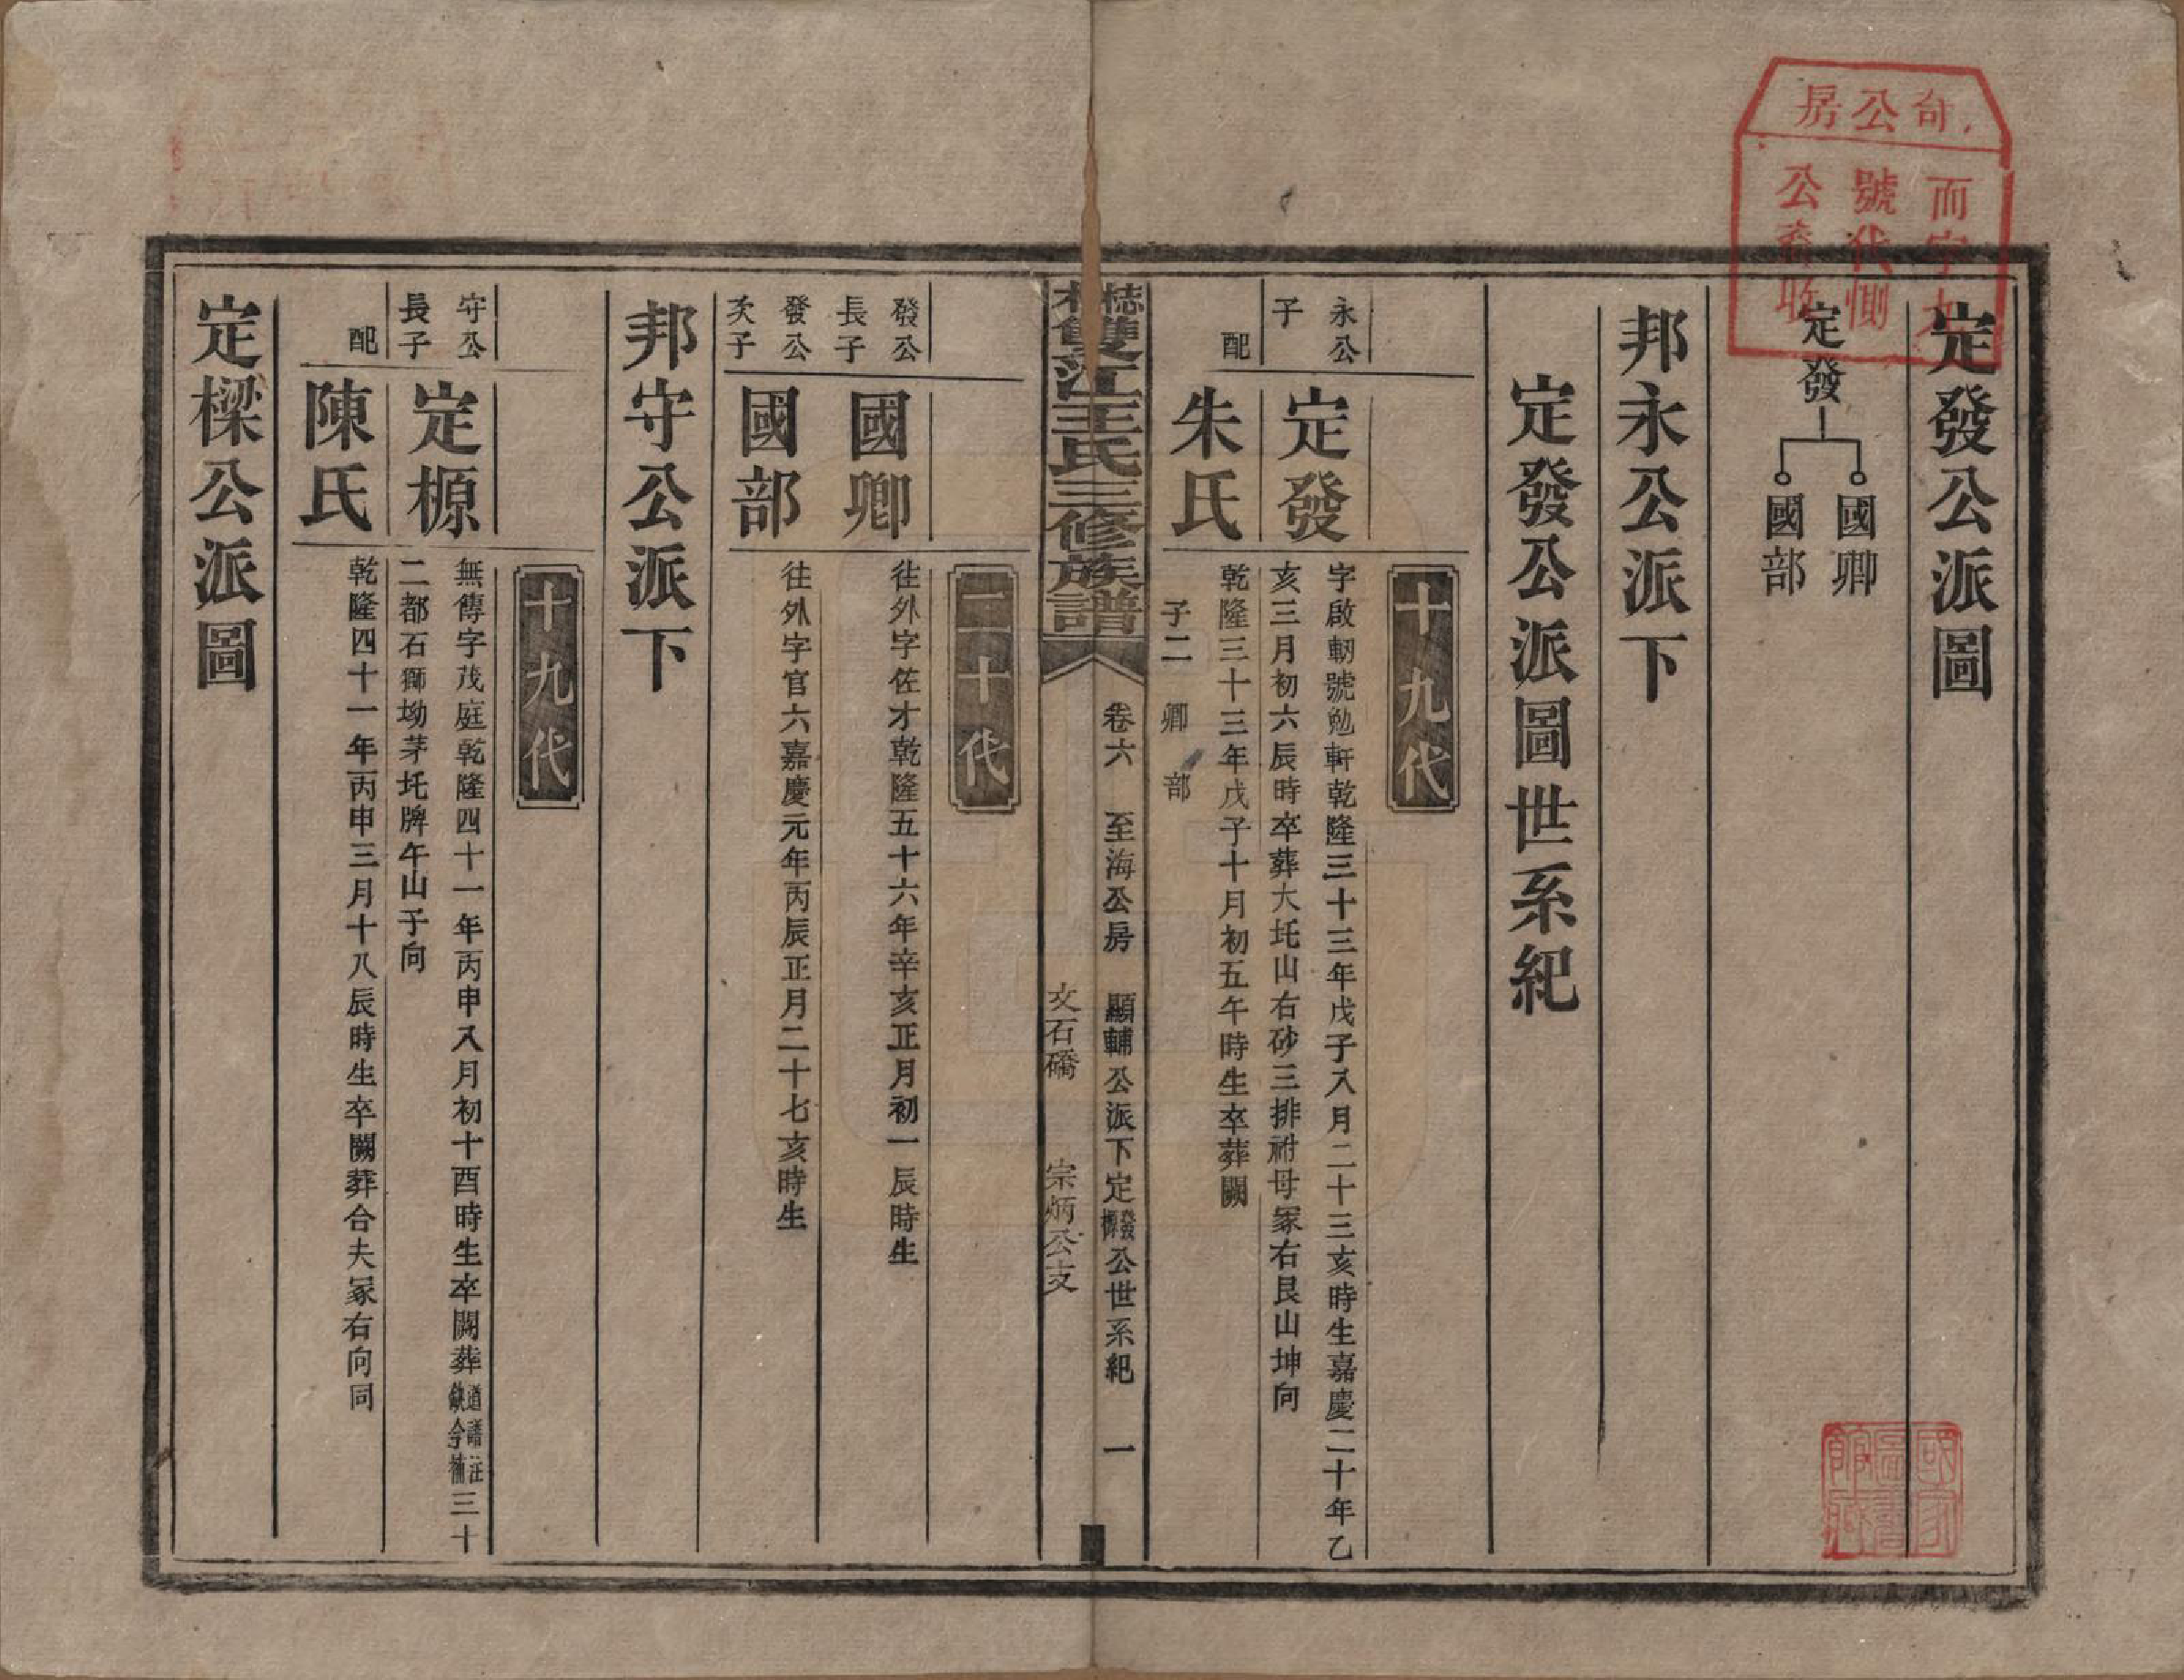 定發公派圖
定發
國卿
國部
邦永公派下
定發公派圖世系紀
十九代
永公子
定發
字啟軔號勉軒乾隆三十三年戊子八月二十三亥時生嘉慶二十年乙
亥三月初六辰時卒葬大坉山右砂三排祔母冢右艮山坤向
配
朱氏
乾隆三十三年戊子十月初五午時生卒葬闕
子二 卿 部
雙江王氏三修族譜
卷六 至海公房 顯輔公派下定發榞公世系紀 一
文石磻 宗炳公支
二十代
發公長子
國卿
徃外字佐才乾隆五十六年辛亥正月初一辰時生
發公次子
國部
徃外字官六嘉慶元年丙辰正月二十七亥時生
邦守公派下
十九代
守公長子
定榞
無傳字茂庭乾隆四十一年丙申八月初十酉時生卒闕葬道譜註缺今補三十
二都石獅坳茅坉牌午山子向
配
陳氏
乾隆四十一年丙申三月十八辰時生卒闕葬合夫冢右向同
定樑公派圖
房公
而字九
號代
公
國家圖書館藏